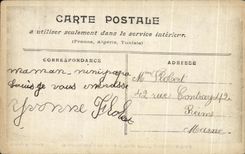 CARTE POSTALE
à utiliser seulement dans le service intérieur.
(France, Algérie, Tunisie)
CORRESPONDANCE
maman mini papa
je vous embrasse
Yvonne Flobert
Mme Flobert
42 rue 42
Reims
Marne